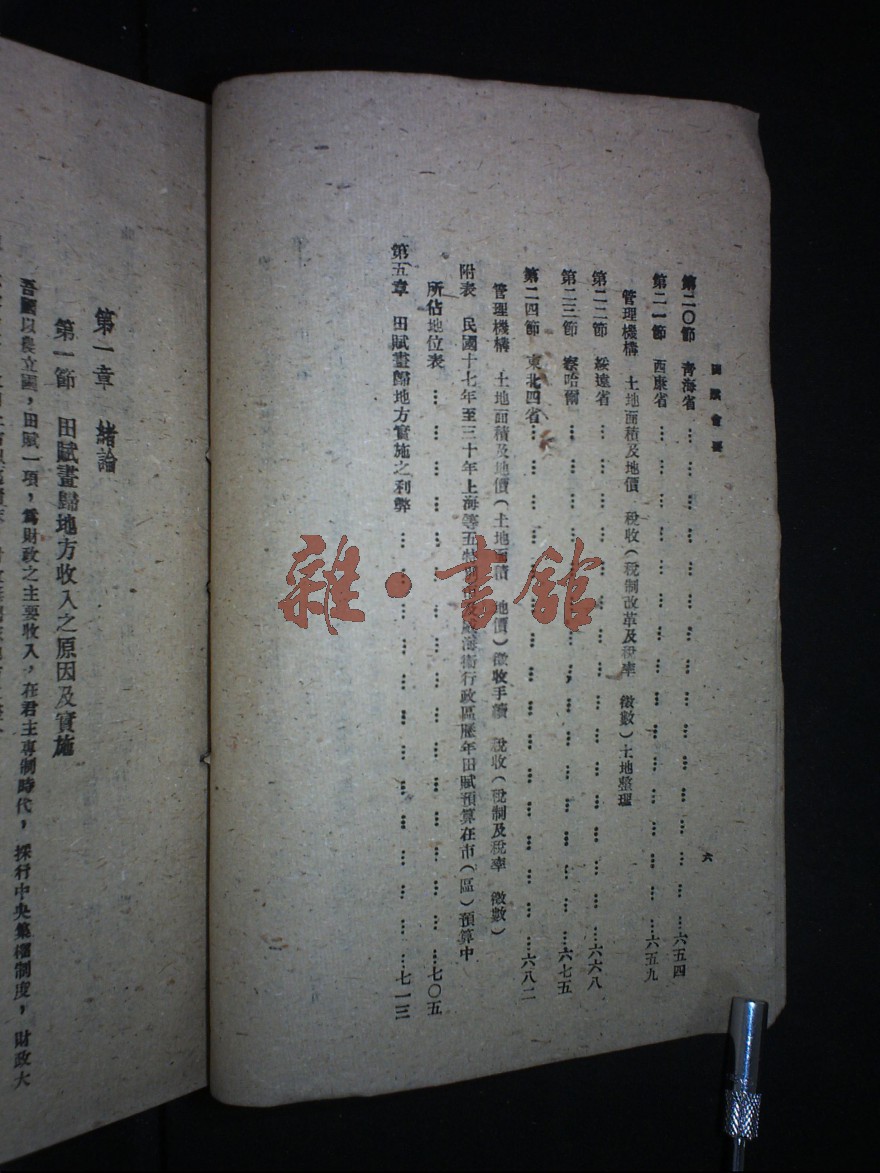 田賦會要
六
第二〇節　青海省………………六五四
第二一節　西康省………………六五九
管理機構　土地面積及地價　稅收（稅制改革及稅率　徵數）土地整理
第二二節　綏遠省………………六六八
第二三節　察哈爾………………六七五
第二四節　東北四省………………六八二
管理機構　土地面積及地價（土地面積　地價）徵收手續　稅收（稅制及稅率　徵數）
附表　民國十七年至三十年上海等五特別市及威海衛行政區歷年田賦預算在市（區）預算中
所佔地位表………………七〇五
第五章　田賦畫歸地方實施之利弊………………七一三
第一章　緒論
第一節　田賦畫歸地方收入之原因及實施
吾國以農立國，田賦一項，爲財政之主要收入，在君主專制時代，採行中央集權制度，財政大
雜·書館